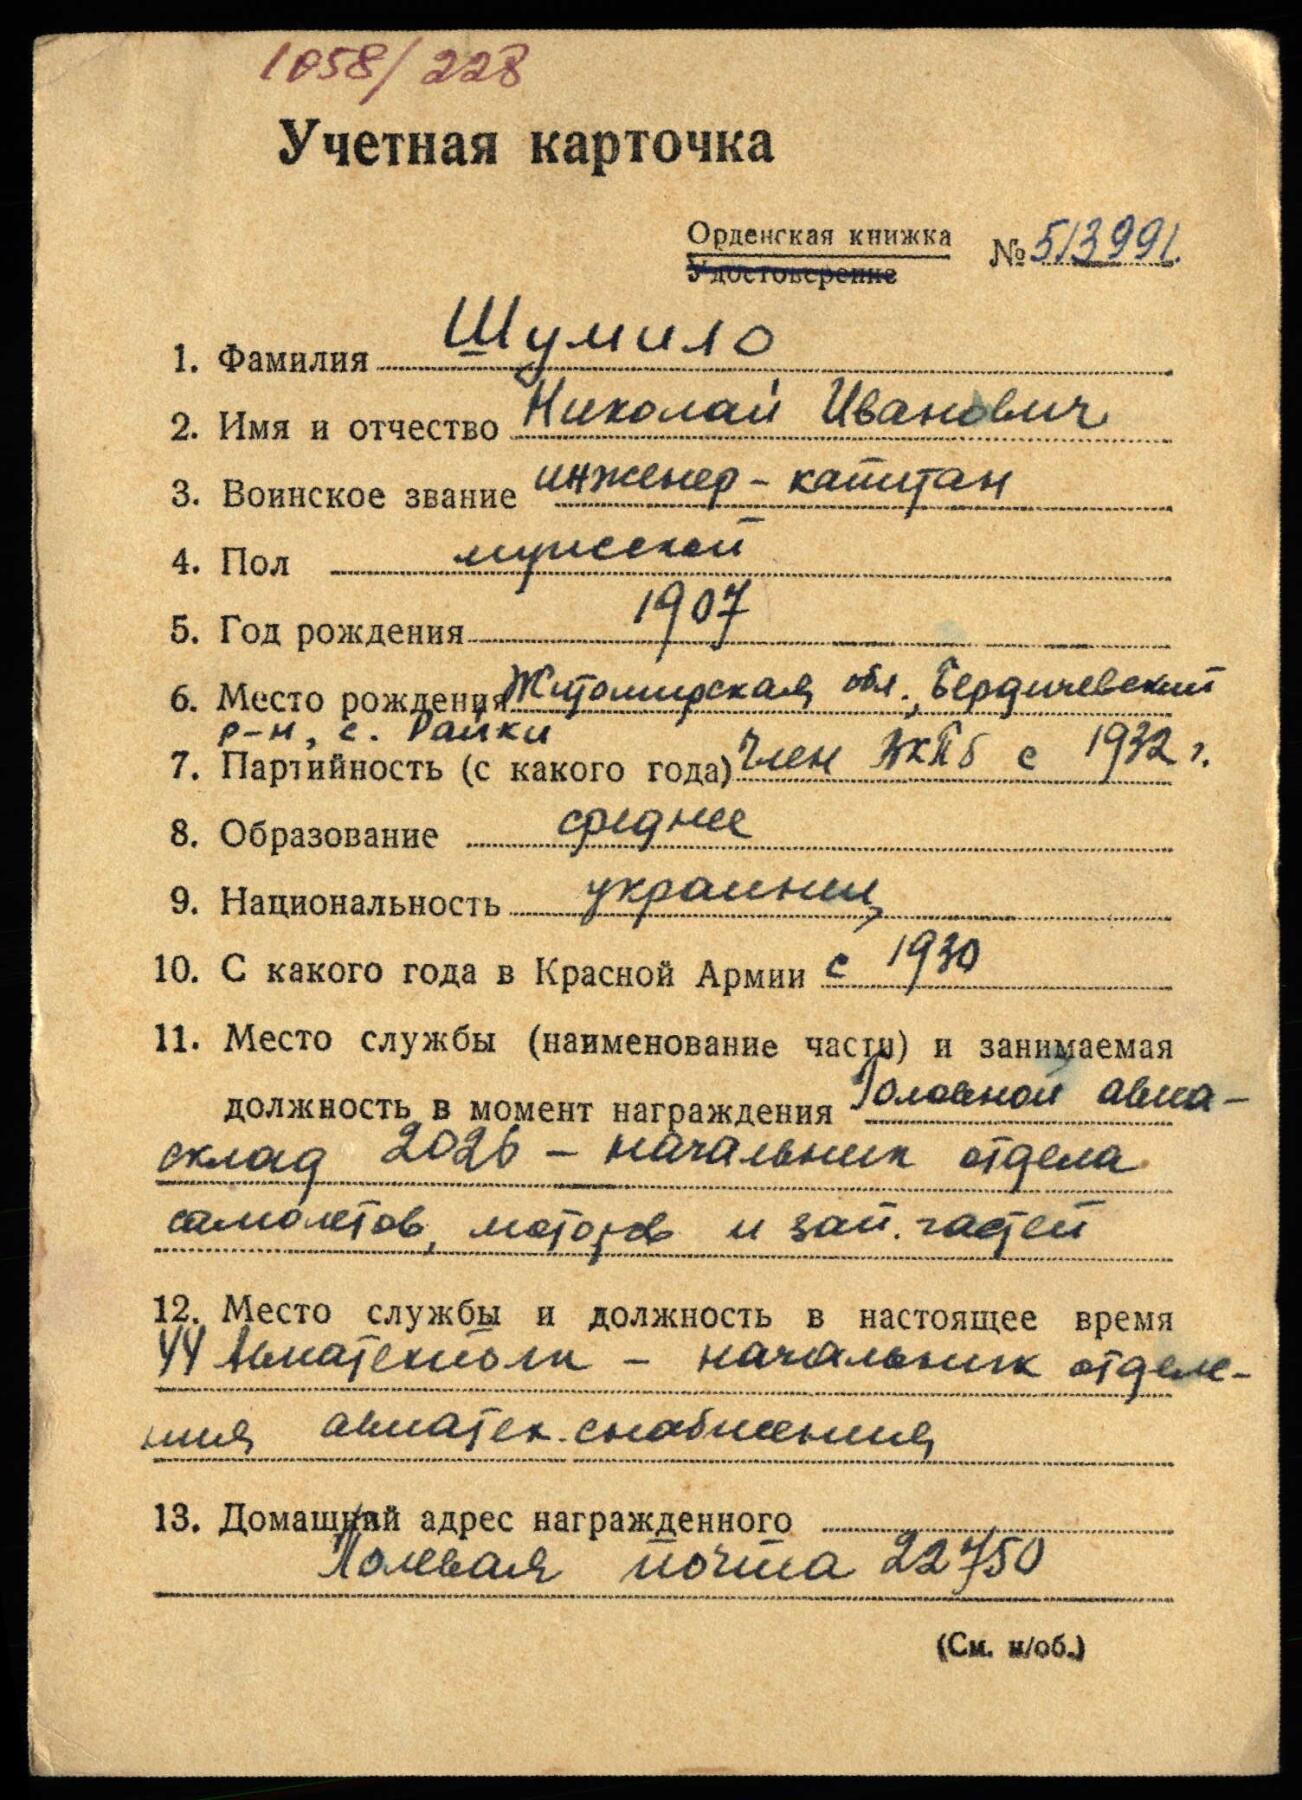 1058/228
Учетная карточка
Орденская книжка № 513991.
Удостоверение
1. Фамилия Шумило
2. Имя и отчество Николай Иванович
3. Воинское звание инженер-капитан
4. Пол мужской
5. Год рождения 1907
6. Место рождения Житомирская обл., Бердичевский
р-н, с. Райки
7. Партийность (с какого года) Член ВКПб с 1932 г.
8. Образование среднее
9. Национальность украинец
10. С какого года в Красной Армии с 1930
11. Место службы (наименование части) и занимаемая
должность в момент награждения Головной авиа-
склад 2026 – начальник отдела
самолетов, моторов и зап. частей
12. Место службы и должность в настоящее время
44 Авиатехполк – начальник отделе-
ния авиатех. снабжения
13. Домашний адрес награжденного
Полевая почта 22750
(См. н/об.)